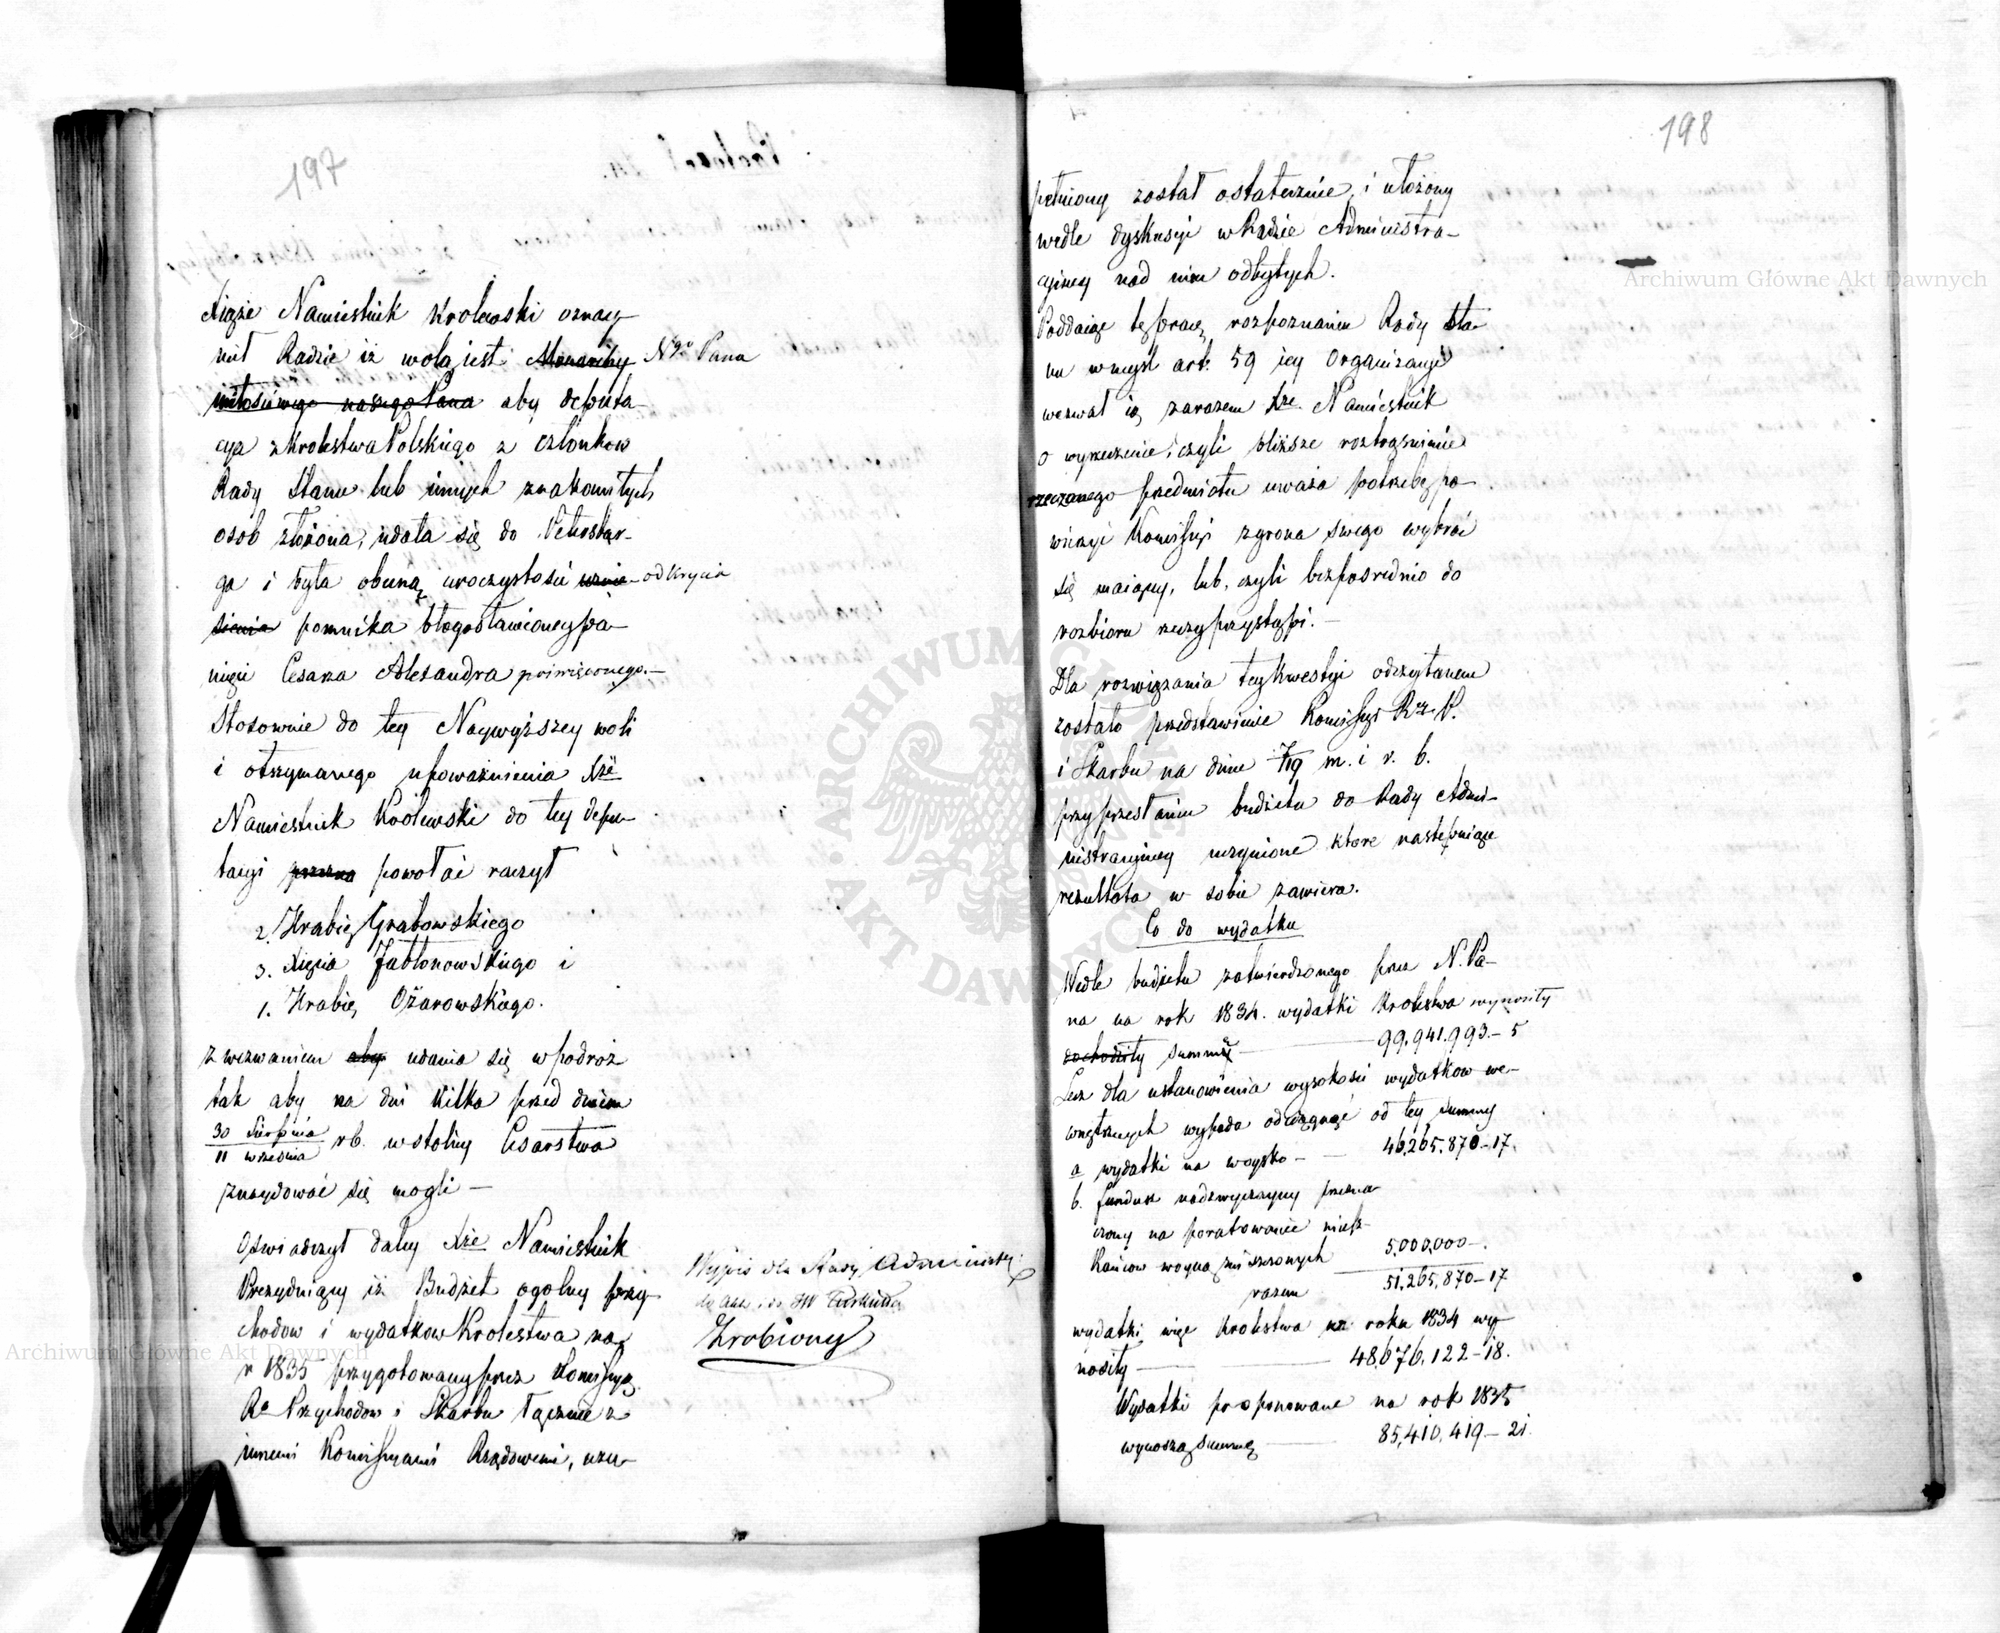 197
Xiąże Namiestnik Królewski oznay-
mił Radzie iż wolą iest Monarchy Nigo Pana
miłościwego naszego Pana aby deputa-
cya z Królestwa Polskiego z członkow
Rady Stanu lub innych znakomitych
osob złożona, udała się do Petersbur-
ga i była obecną uroczystości wznie- odkrycia
sienia pomnika błogosławioney pa-
mięci Cesarza Alexandra poświęconego.—
Stosownie do tey Naywyższey woli
i otrzymanego upoważnienia Xże
Namiestnik Królewski do tey depu-
tacyi powołać raczył
2. Hrabię Grabowskiego
3. Xięcia Jabłonowskiego i
1. Hrabię Ożarowskiego.
z wezwaniem aby udania się w podróż
tak aby na dni kilka przed dniem
30 Sierpnia
11 września rb. w stolicy Cesarstwa
znaydować się mogli —
Oświadczył daley Xże Namiestnik
Prezyduiący iż Budżet ogolny przy-
chodow i wydatkow Krolestwa na
r 1835 przygotowany przez Kommissyą
Rą Przychodow i Skarbu łącznie z
innemi Kommissyami Rządowemi, uzu-
Wypis dla Rady Administr:
Zrobiony
198
pełniony został ostatecznie, i ułożony
wedle dyskusyi w Radzie Administra-
cyiney nad nim odbytych.
Poddaiąc tę pracę rozpoznaniu Rady Sta-
nu w myśl art. 59 iey Organizacyi
wezwał ią zarazem Xże Namiestnik
o wyrzeczenie, czyli bliższe roztrząśnienie
rzeczonego przedmiotu uważa potrzebę po-
wierzyć Kommissyi z grona swego wybrać
się maiącey, lub, czyli bezpośrednio do
rozbioru rzeczy przystąpi.—
Dla rozwiązania tey kwestyi odczytanem
zostało przedstawienie Kommissyi Rz. P.
i Skarbu na dniu 7/19 m. i r. b.
przy przesłaniu budżetu do Rady Admi-
nistracyiney uczynione które następuiące
rezultata w sobie zawiera.
Co do wydatku
Wedle budżetu zatwierdzonego przez N. Pa-
na na rok 1834. wydatki Krolestwa wynosiły
dochodziły summę — 99,941,993.— 5
Lecz dla ustanowienia wysokości wydatkow we-
wnętrznych wypada odciągnąć od tey summy
a wydatki na woysko — 46,265,870—17.
b. fundusz nadzwyczayny przezna-
czony na poratowanie miesz-
kańcow woyną zniszczonych 5,000,000—.
razem 51,265,870—17
wydatki więc Krolestwa w roku 1834 wy-
nosiły — 48,676,122—18.
Wydatki proponowane na rok 1835
wynoszą summę — 85,410,419—21
Archiwum Główne Akt Dawnych
Archiwum Główne Akt Dawnych
ARCHIWUM GŁÓWNE AKT DAWNYCH